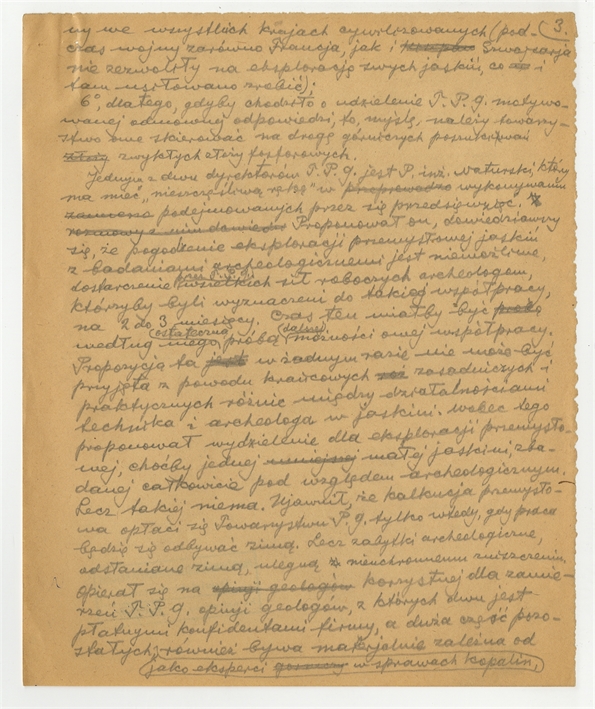 ny we wszystkich krajach cywilizowanych (pod- (3.
czas wojny zarówno Francja, jak i Szwajcarja
nie zezwoliły na eksplorację swych jaskiń, co i
tam usiłowano zrobić);
6°, dlatego, gdyby chodziło o udzielenie T.P.g. motywo-
wanej odmownej odpowiedzi, to, myślę, należy towarzy-
stwo one skierować na drogę górniczych poszukiwań
zwykłych złóż fosforowych.
Jednym z dwu dyrektorów T.P.g. jest P. inż. Naturski, który
ma mieć „nieszczęśliwą rękę" w wykonywaniu
podejmowanych przez się przedsięwzięć.
Proponował on, dowiedziawszy
się, że pogodzenie eksploracji przemysłowej jaskiń
z badaniami archeologicznemi jest niemożliwe,
dostarczenie wszelkich sił roboczych archeologom,
którzyby byli wyznaczeni do takiej współpracy,
na 2 do 3 miesięcy. Czas ten miałby być
(ostateczną) (dalszej)
według niego próbą możności owej współpracy.
Propozycja ta w żadnym razie nie może być
przyjęta z powodu krańcowych zasadniczych i
praktycznych różnic między działalnościami
technika i archeologa w jaskini. Wobec tego
proponował wydzielenie dla eksploracji przemysło-
wej, choćby jednej małej jaskini, zba-
danej całkowicie pod względem archeologicznym.
Lecz takiej niema. Ujawnił, że kalkulacja przemysło-
wa opłaci się Towarzystwu P.g. tylko wtedy, gdy praca
będzie się odbywać zimą. Lecz zabytki archeologiczne,
odsłaniane zimą, ulegną nieuchronnemu zniszczeniu.
Opierał się na korzystnej dla zamie-
rzeń T.P.g. opinji geologów, z których dwu jest
płatnymi konfidentami firmy, a duża część pozo-
stałych również bywa materjalnie zależna od
(jako eksperci w sprawach kopalin,)